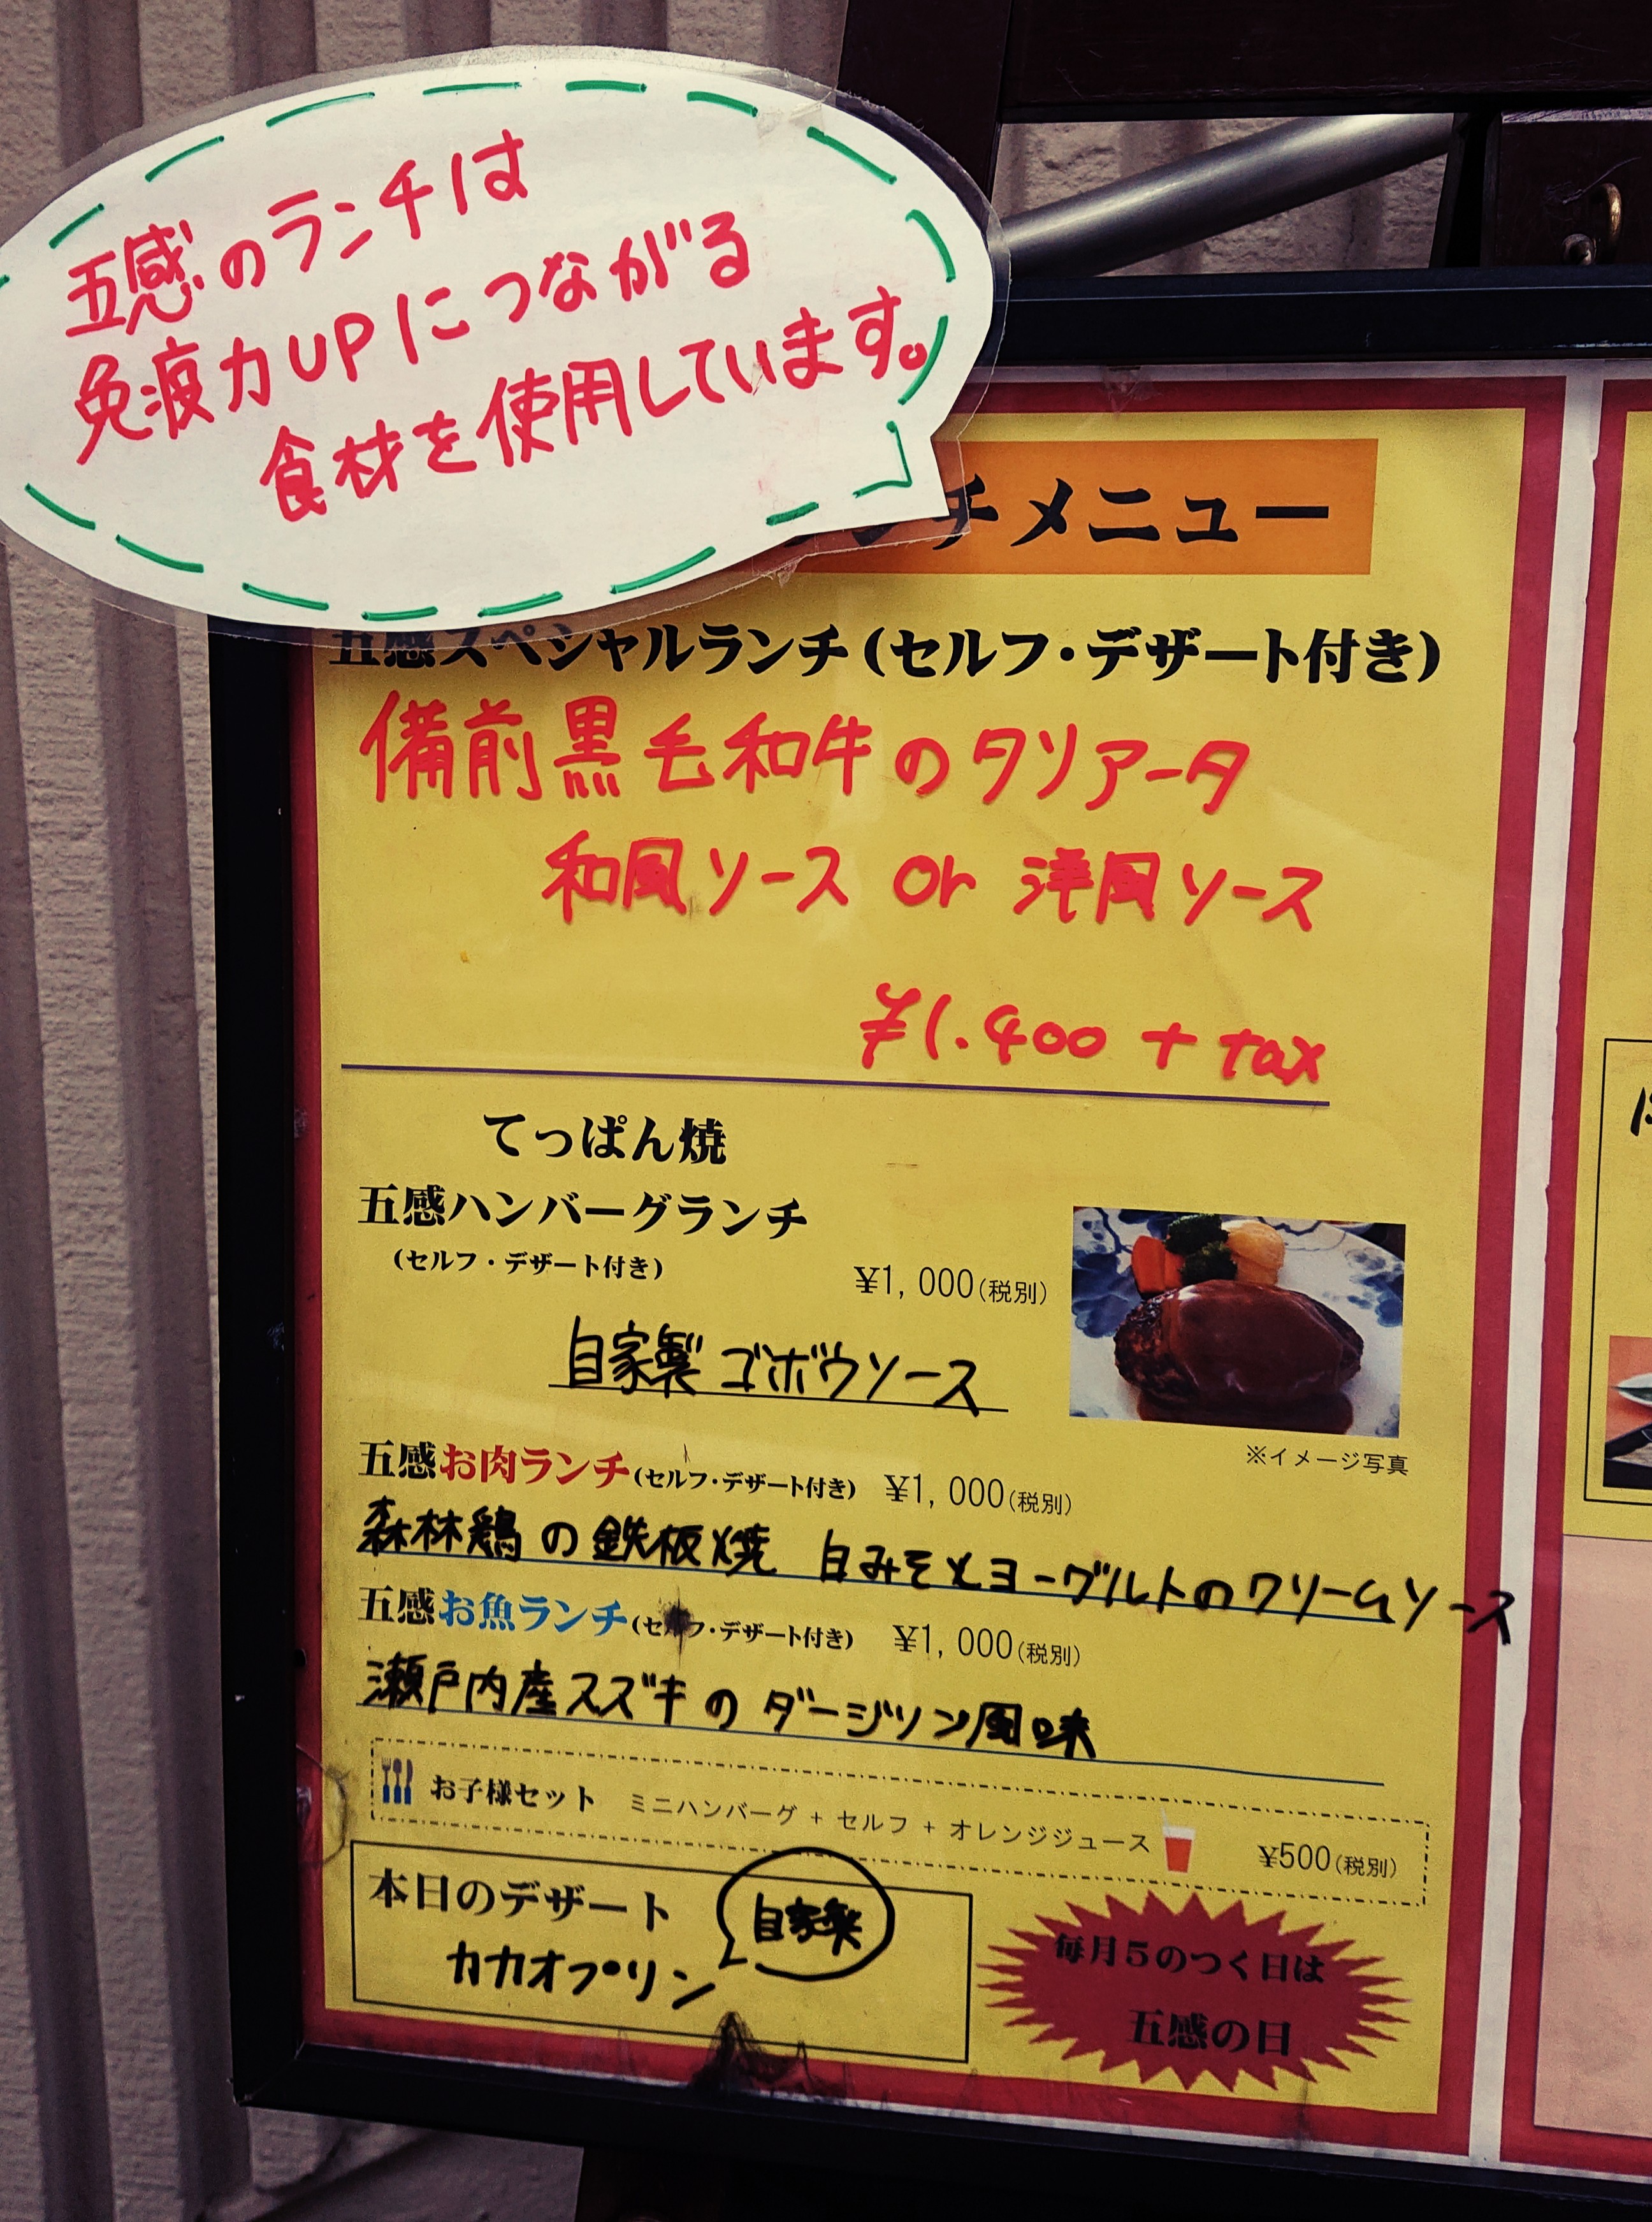 五感のランチは
免疫力UPにつながる
食材を使用しています。
ンチメニュー
五感スペシャルランチ(セルフ・デザート付き)
備前黒毛和牛のタリアータ
和風ソース or 洋風ソース
¥1.400 + tax
てっぱん焼
五感ハンバーグランチ
(セルフ・デザート付き)
¥1,000(税別)
自家製ゴボウソース
※イメージ写真
五感お肉ランチ(セルフ・デザート付き) ¥1,000(税別)
森林鶏の鉄板焼 白みそとヨーグルトのクリームソース
五感お魚ランチ(セルフ・デザート付き) ¥1,000(税別)
瀬戸内産スズキのダージリン風味
お子様セット ミニハンバーグ + セルフ + オレンジジュース ¥500(税別)
本日のデザート
自家製
カカオプリン
毎月5のつく日は
五感の日